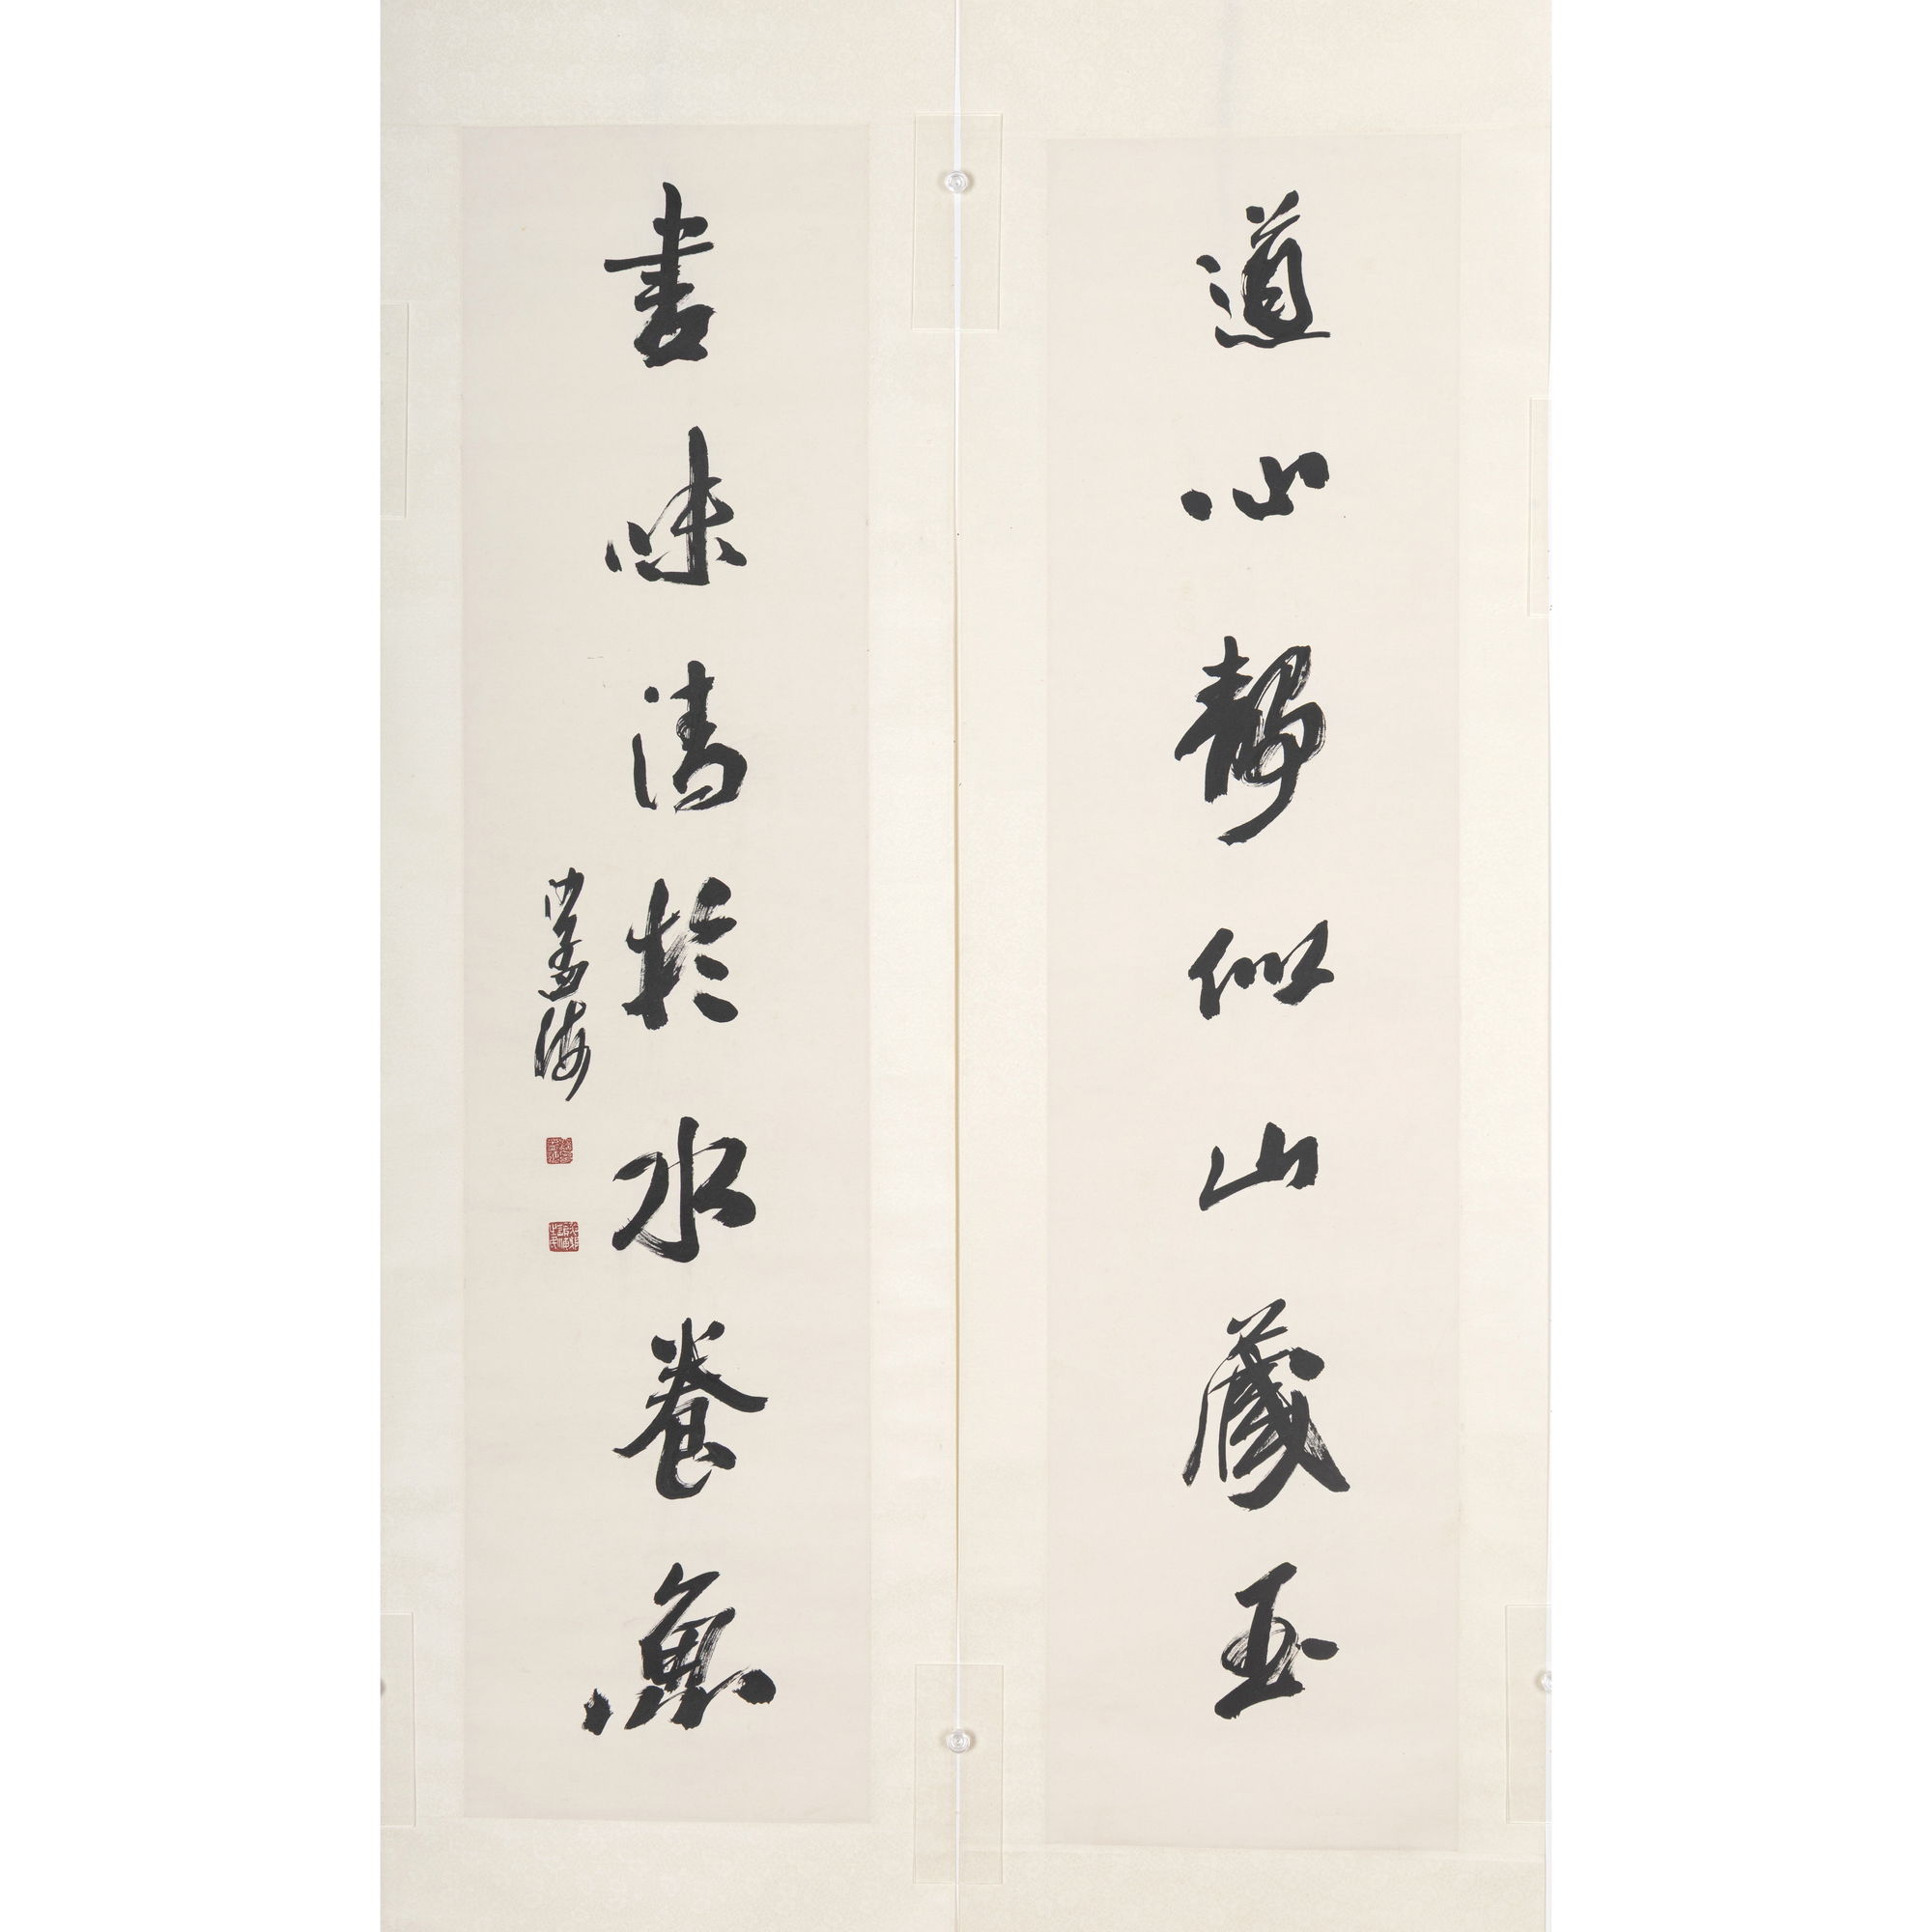 道心静似山藏玉
書味清於水養魚
沙孟海